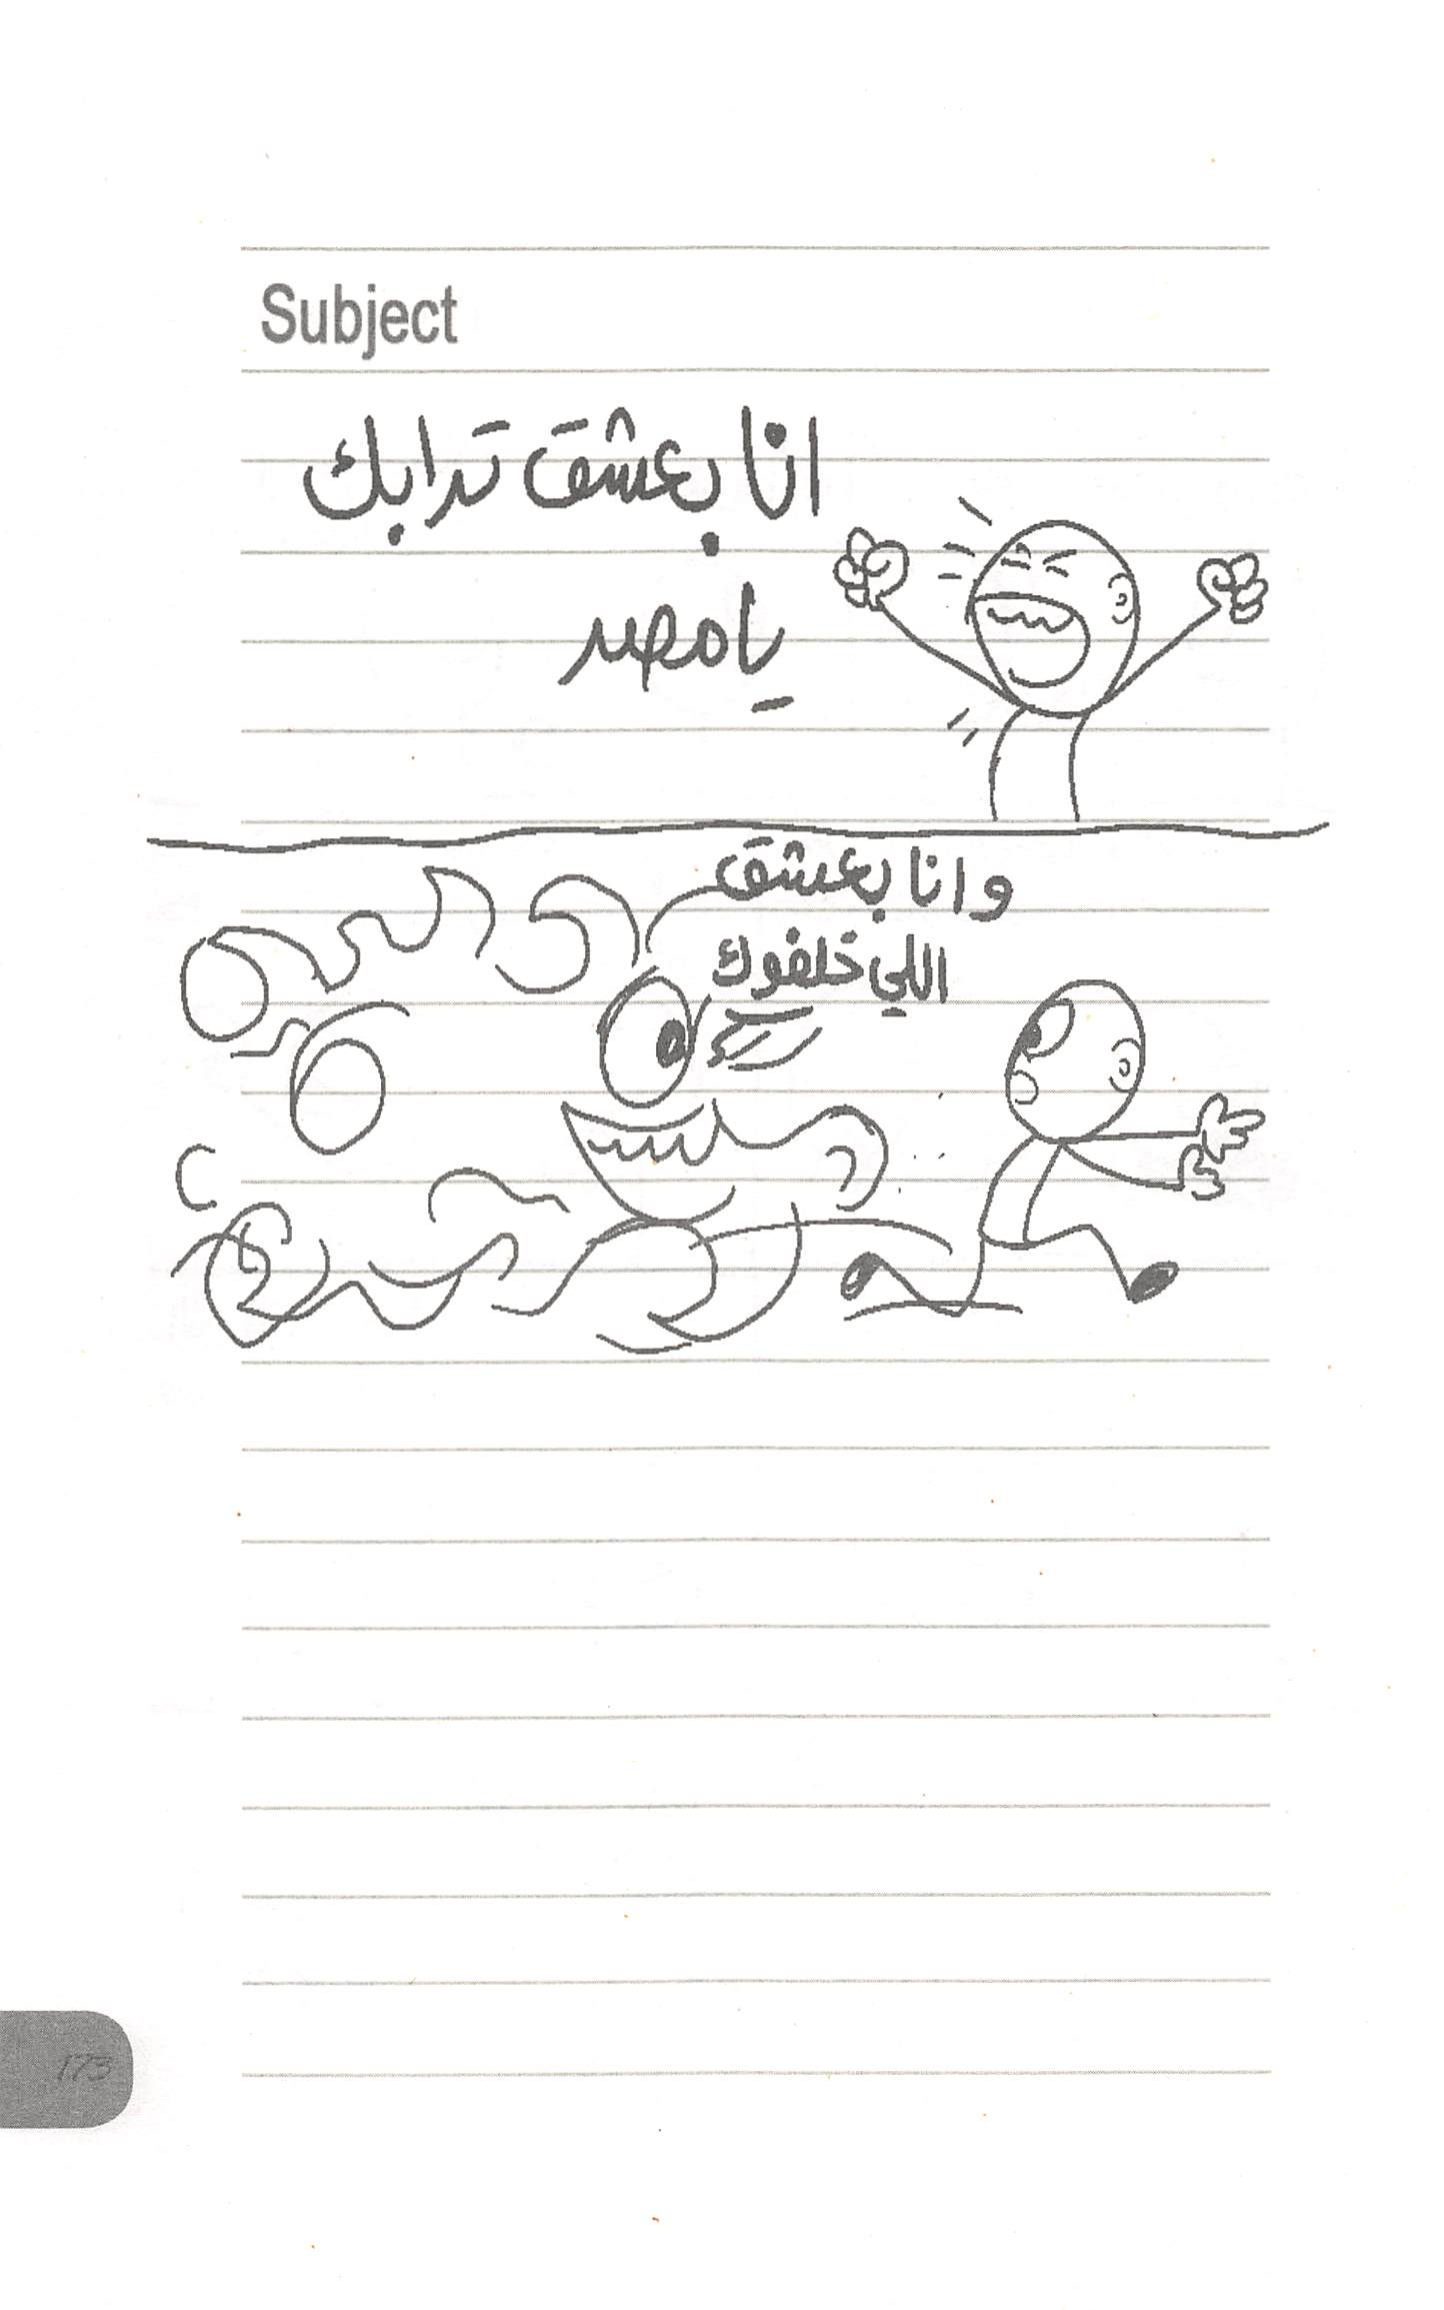 Subject
انا بعشق ترابك
يا مصر
وانا بعشق
اللي خلفوك
173